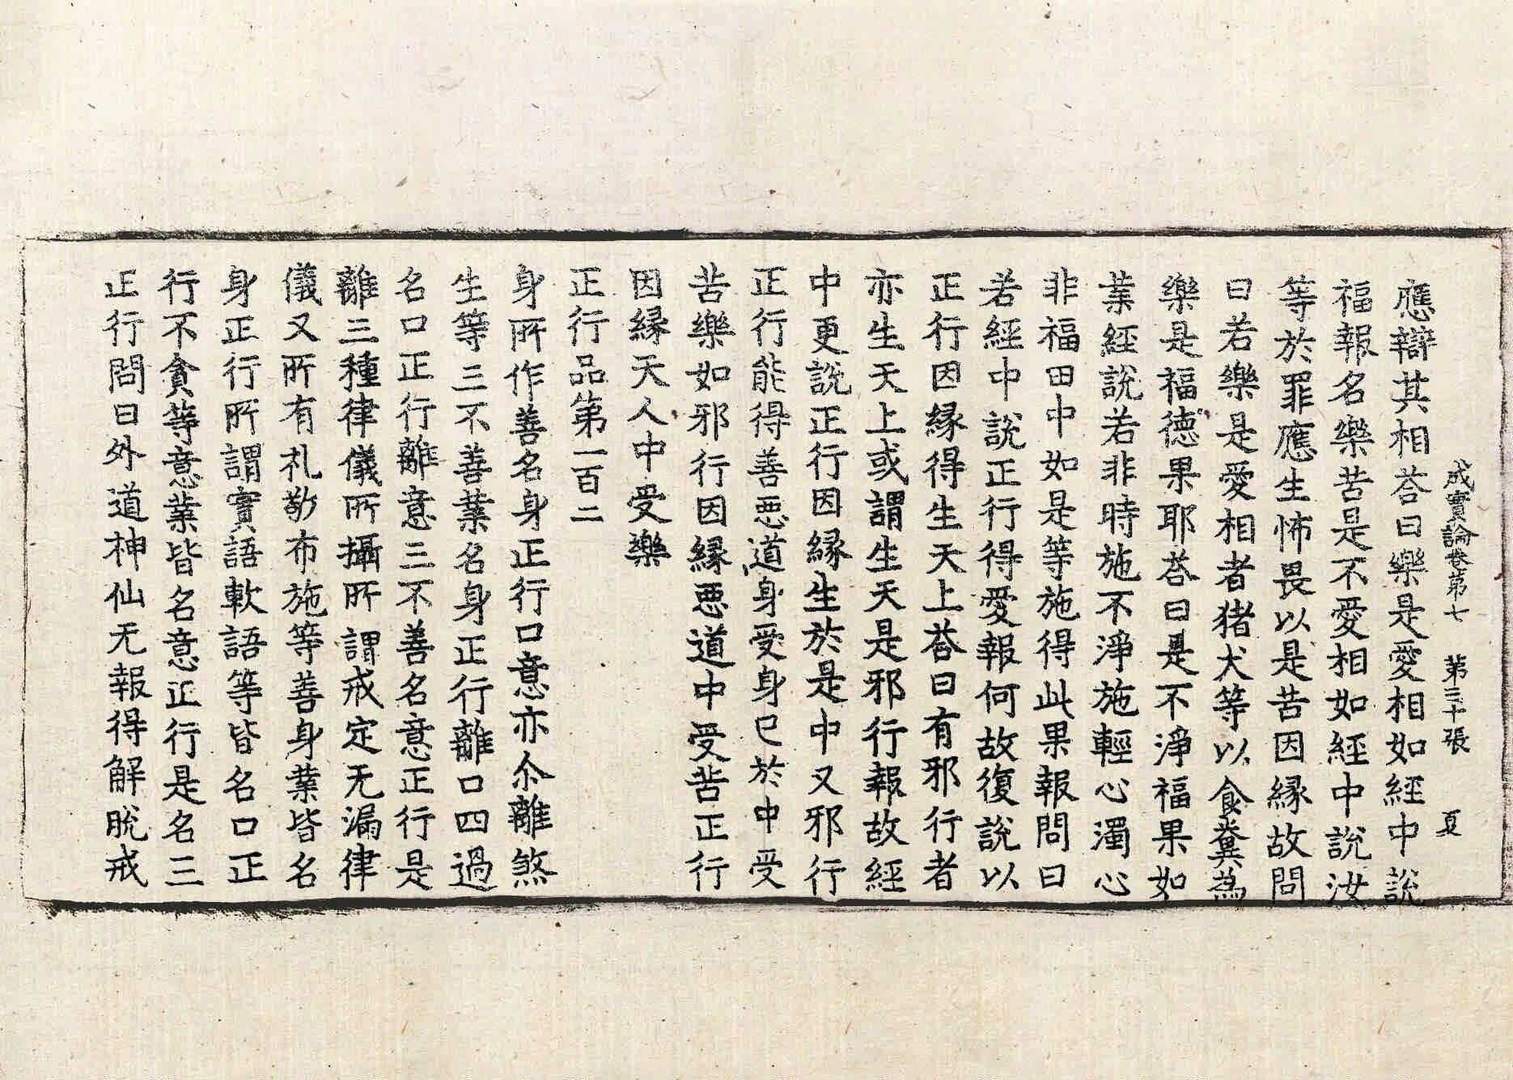 成實論卷第七 第三十張 夏
應辯其相荅曰樂是愛相如經中說
福報名樂苦是不愛相如經中說汝
等於罪應生怖畏以是苦因緣故問
曰若樂是愛相者猪犬等以食糞為
樂是福德果耶荅曰是不淨福果如
業經說若非時施不淨施輕心濁心
非福田中如是等施得此果報問曰
若經中說正行得愛報何故復說以
正行因緣得生天上荅曰有邪行者
亦生天上或謂生天是邪行報故經
中更說正行因緣生於是中又邪行
正行能得善惡道身受身已於中受
苦樂如邪行因緣惡道中受苦正行
因緣天人中受樂
正行品第一百二
身所作善名身正行口意亦尒離煞
生等三不善業名身正行離口四過
名口正行離意三不善名意正行是
離三種律儀所攝所謂戒定无漏律
儀又所有礼敬布施等善身業皆名
身正行所謂實語軟語等皆名口正
行不貪等意業皆名意正行是名三
正行問曰外道神仙无報得解脫戒